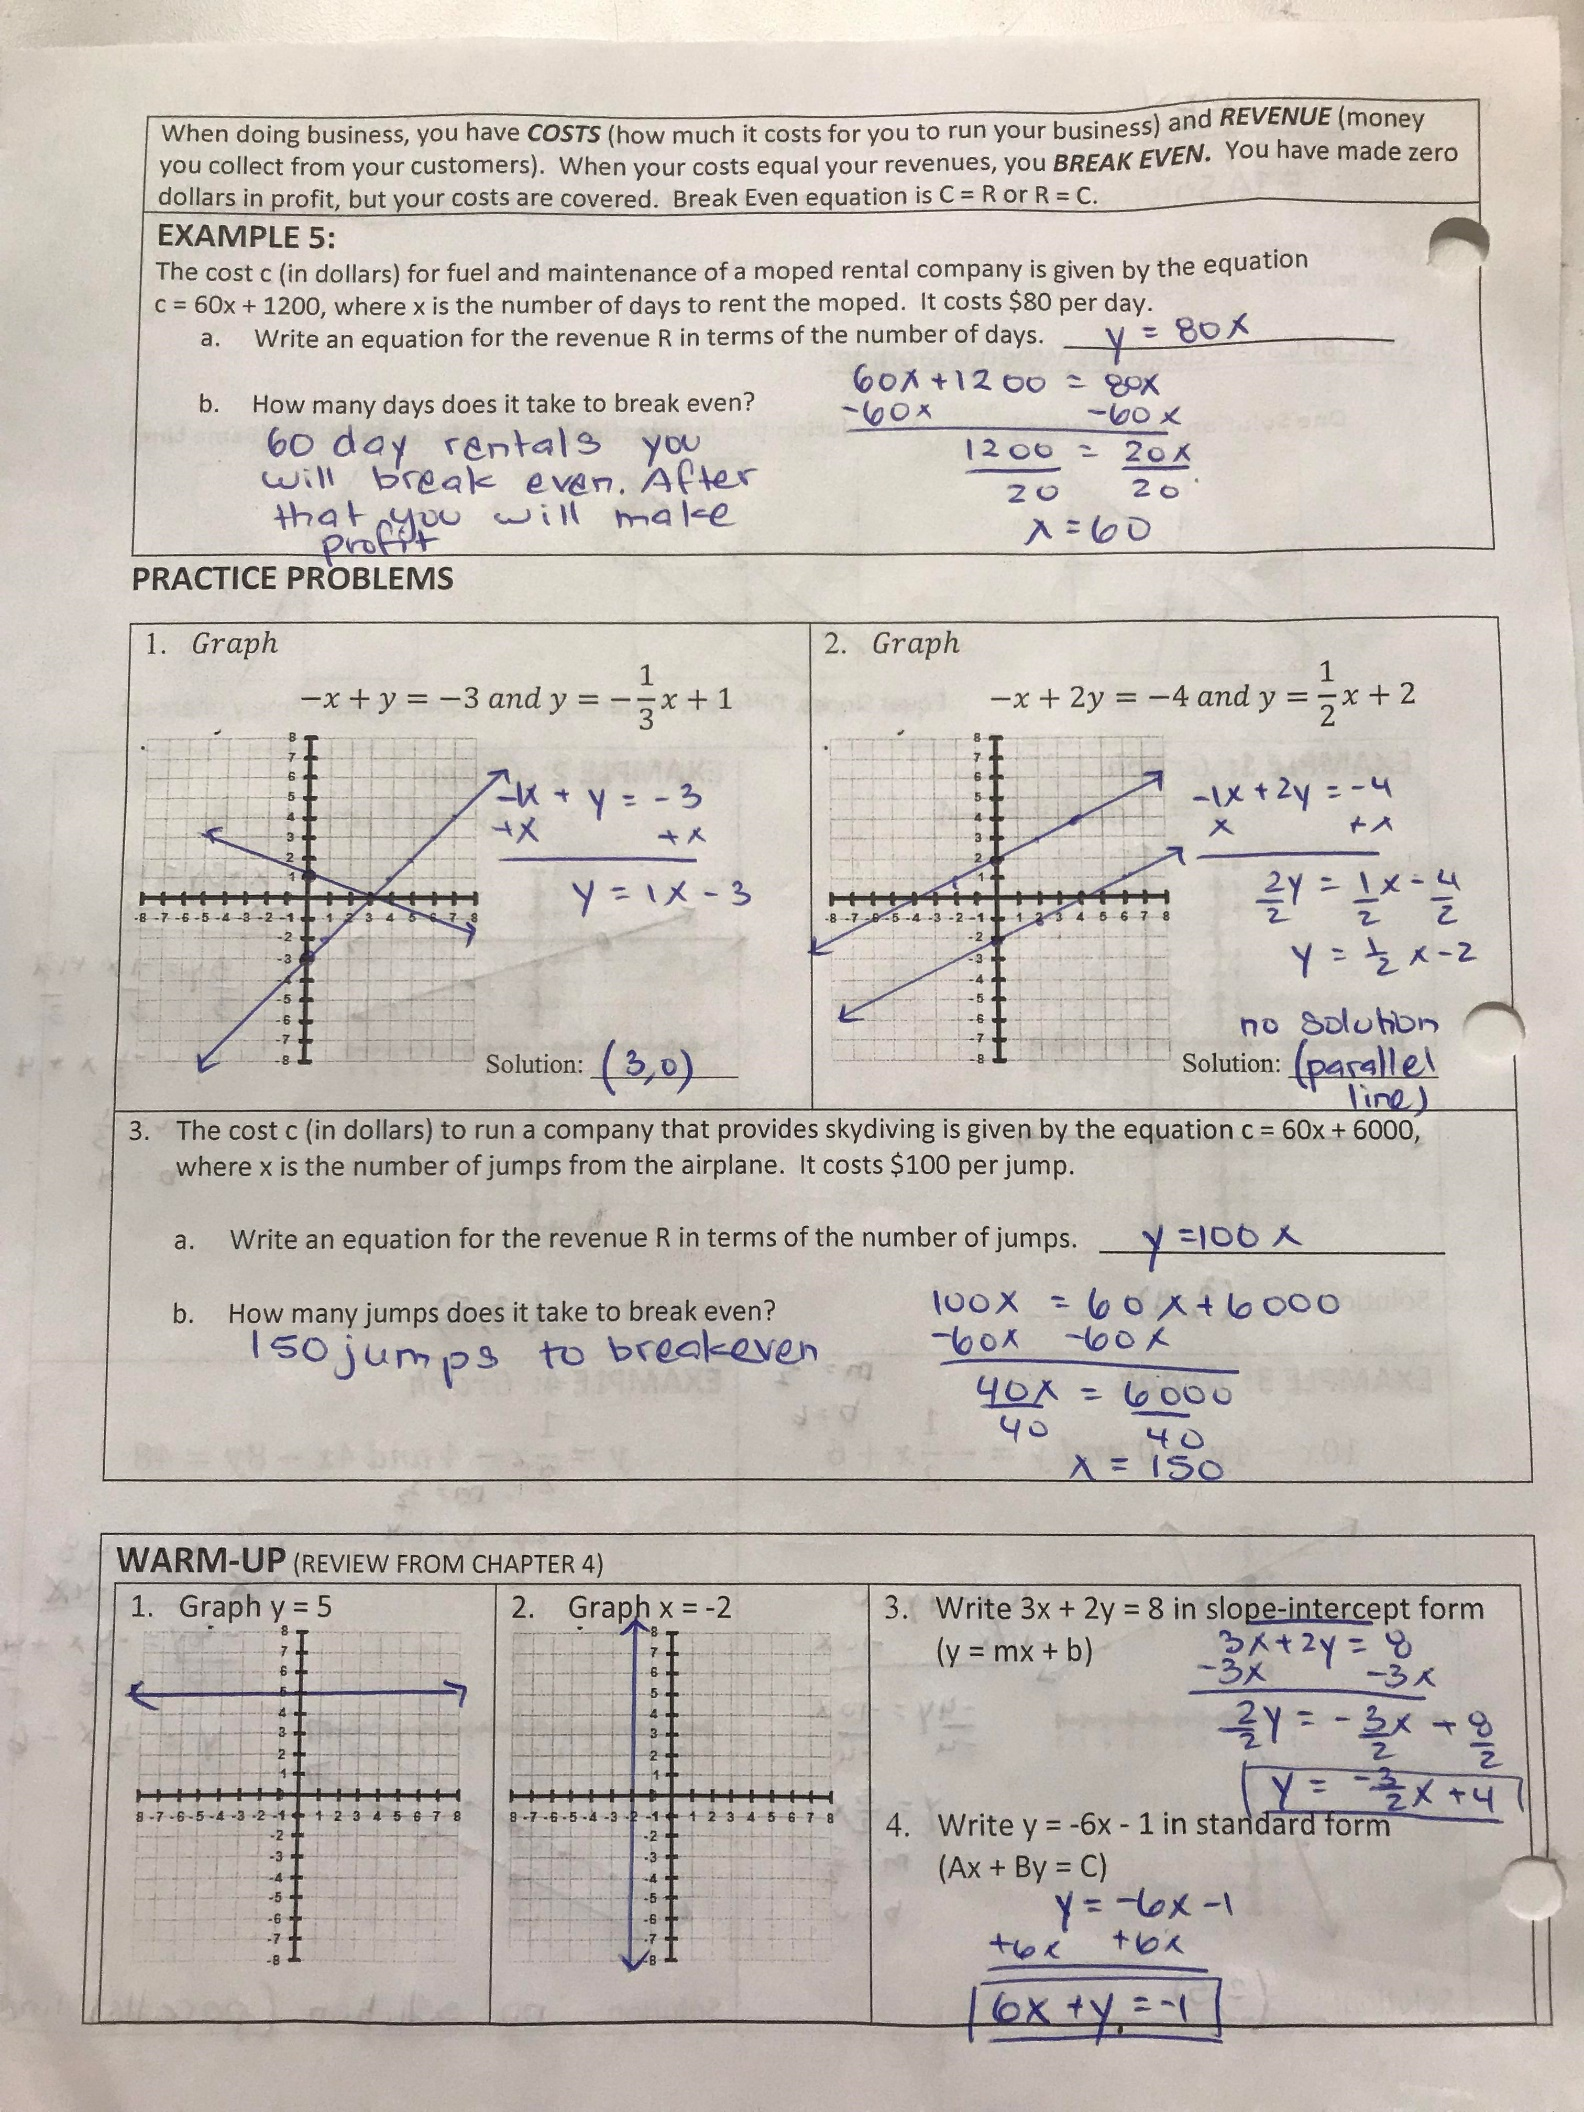 When doing business, you have COSTS (how much it costs for you to run your business) and REVENUE (money
you collect from your customers). When your costs equal your revenues, you BREAK EVEN. You have made zero
dollars in profit, but your costs are covered. Break Even equation is C = R or R = C.
EXAMPLE 5:
The cost c (in dollars) for fuel and maintenance of a moped rental company is given by the equation
c = 60x + 1200, where x is the number of days to rent the moped. It costs $80 per day.
a. Write an equation for the revenue R in terms of the number of days. y = 80x
b. How many days does it take to break even?
60 day rentals you
will break even. After
that you will make
profit
60x + 1200 = 80x
-60x -60x
1200 = 20x
20 20
x = 60
PRACTICE PROBLEMS
1. Graph
-x + y = -3 and y = -1/3x + 1
8
7
6
5
4
3
2
1
-8 -7 -6 -5 -4 -3 -2 -1 1 2 3 4 5 6 7 8
-2
-3
-4
-5
-6
-7
-8
-1x + y = -3
+x +x
y = 1x - 3
Solution: (3,0)
2. Graph
-x + 2y = -4 and y = 1/2x + 2
8
7
6
5
4
3
2
1
-8 -7 -6 -5 -4 -3 -2 -1 1 2 3 4 5 6 7 8
-2
-3
-4
-5
-6
-7
-8
-1x + 2y = -4
x +x
2y = 1x - 4
2 2 2
y = 1/2 x - 2
no solution
Solution: (parallel
line)
3. The cost c (in dollars) to run a company that provides skydiving is given by the equation c = 60x + 6000,
where x is the number of jumps from the airplane. It costs $100 per jump.
a. Write an equation for the revenue R in terms of the number of jumps. y = 100x
b. How many jumps does it take to break even?
150 jumps to breakeven
100x = 60x + 6000
-60x -60x
40x = 6000
40 40
x = 150
WARM-UP (REVIEW FROM CHAPTER 4)
1. Graph y = 5
8
7
6
5
4
3
2
1
8 -7 -6 -5 -4 -3 -2 -1 1 2 3 4 5 6 7 8
-2
-3
-4
-5
-6
-7
-8
2. Graph x = -2
8
7
6
5
4
3
2
1
8 -7 -6 -5 -4 -3 -2 -1 1 2 3 4 5 6 7 8
-2
-3
-4
-5
-6
-7
-8
3. Write 3x + 2y = 8 in slope-intercept form
(y = mx + b)
3x + 2y = 8
-3x -3x
2y = -3x + 8
2 2 2
y = -3/2 x + 4
4. Write y = -6x - 1 in standard form
(Ax + By = C)
y = -6x - 1
+6x +6x
6x + y = -1